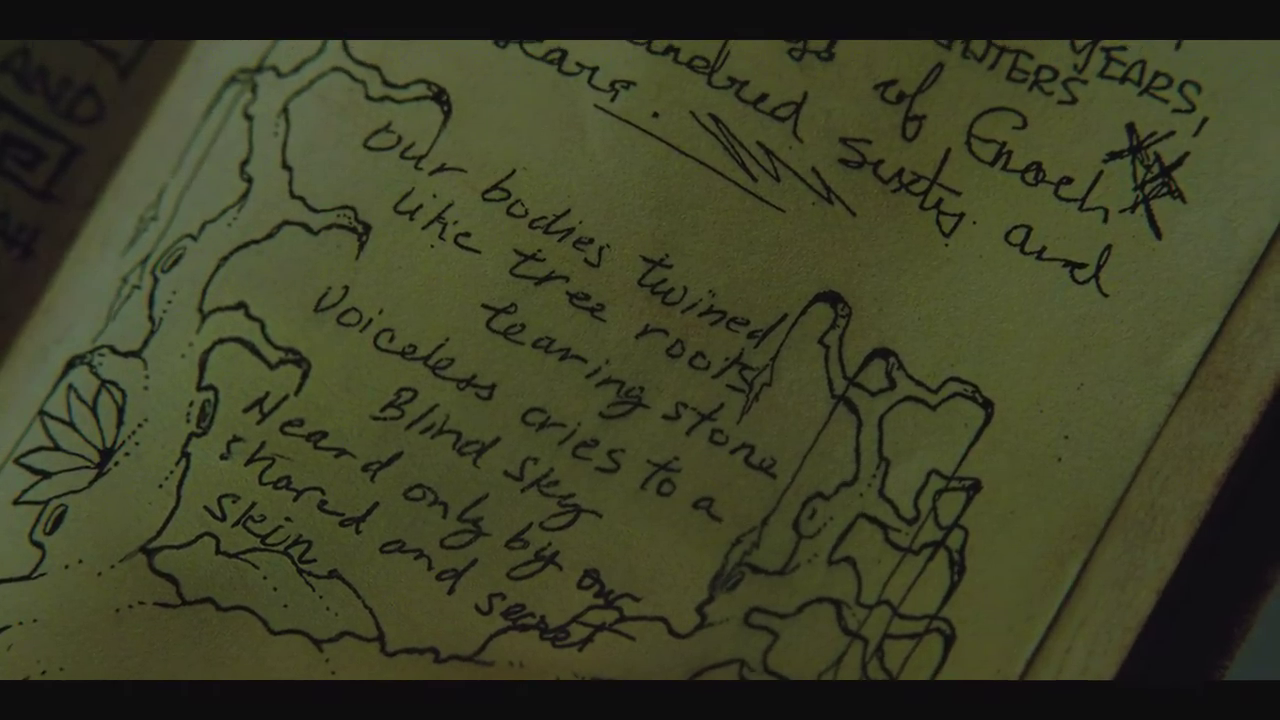 YEARS,
of Enoch
hundred sixty and
years.
Our bodies twined
like tree roots
tearing stone
Voiceless cries to a
Blind sky
Heard only by our
shared and secret
skin.
AND